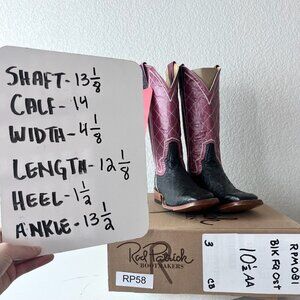 SHAFT-13 1/8
CALF-14
WIDTH-4 1/8
LENGTH-12 1/8
HEEL-1 1/2
ANKLE-13 1/2
Rod Patrick
BOOTMAKERS
RP58
RPM081
BIK FQ OST
10 1/2 AA
3
CB